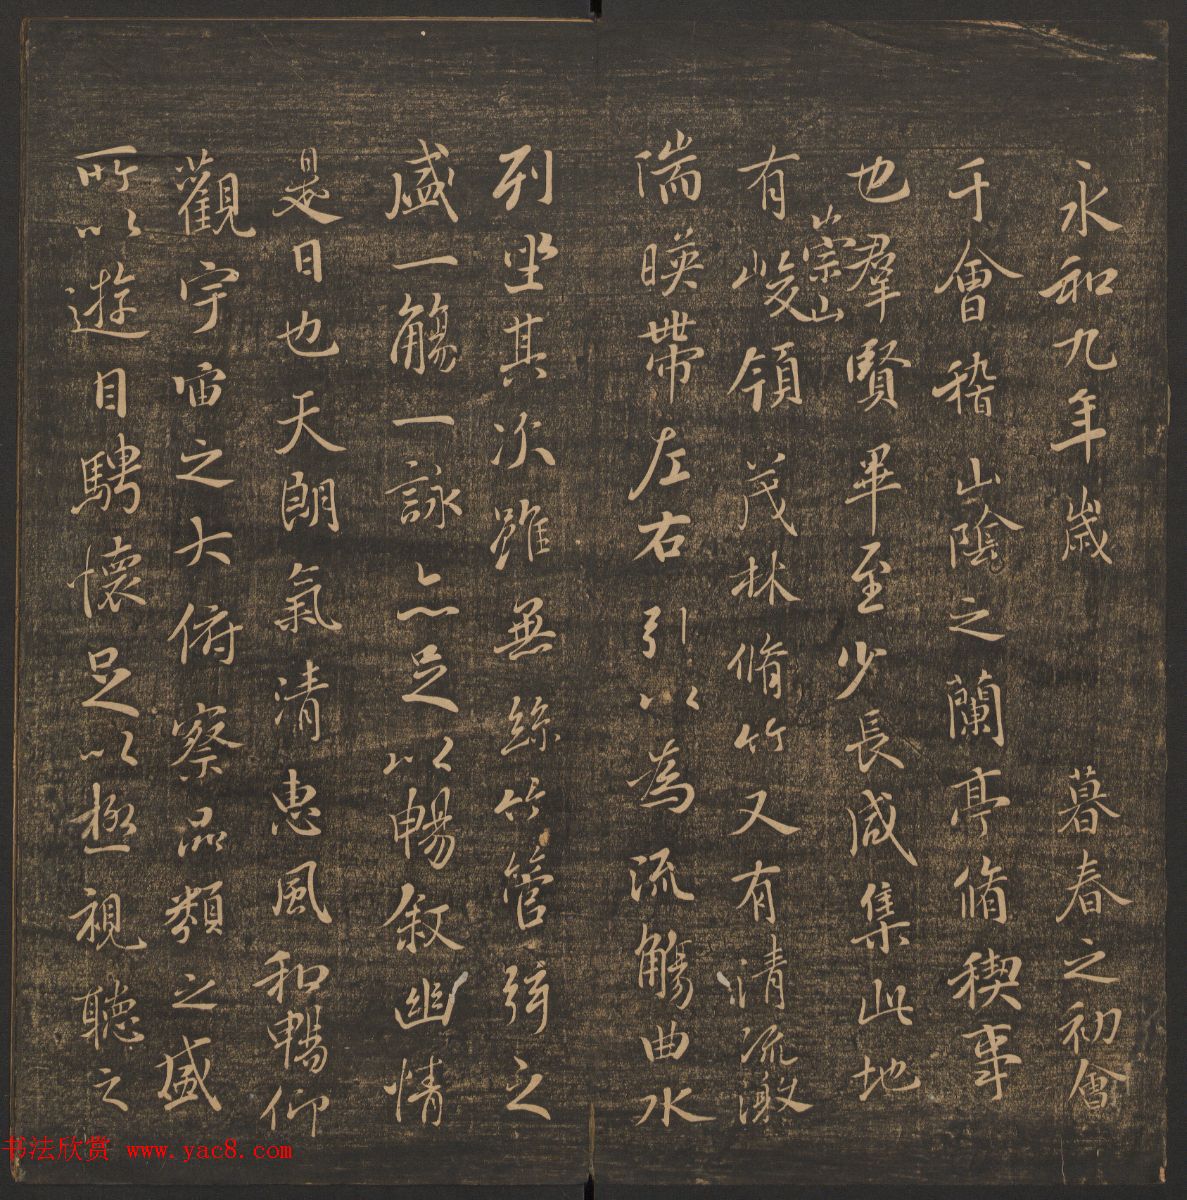 永和九年歲暮春之初會
于會稽山陰之蘭亭脩稧事
也羣賢畢至少長咸集此地
有崇山峻領茂林脩竹又有清流激
湍暎帶左右引以為流觴曲水
列坐其次雖無絲竹管弦之
盛一觴一詠亦足以暢敘幽情
是日也天朗氣清惠風和暢仰
觀宇宙之大俯察品類之盛
所以遊目騁懷足以極視聽之
书法欣赏 www.yac8.com